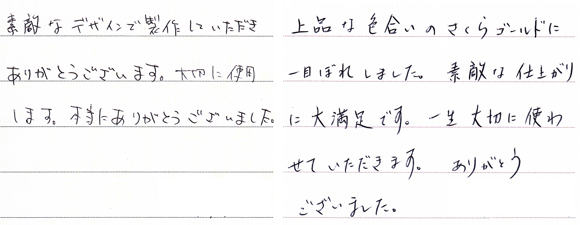 素敵なデザインで製作していただき
ありがとうございます。大切に使用
します。本当にありがとうございました。
上品な色合いのさくらゴールドに
一目ぼれしました。素敵な仕上がり
に大満足です。一生大切に使わ
せていただきます。ありがとう
ございました。